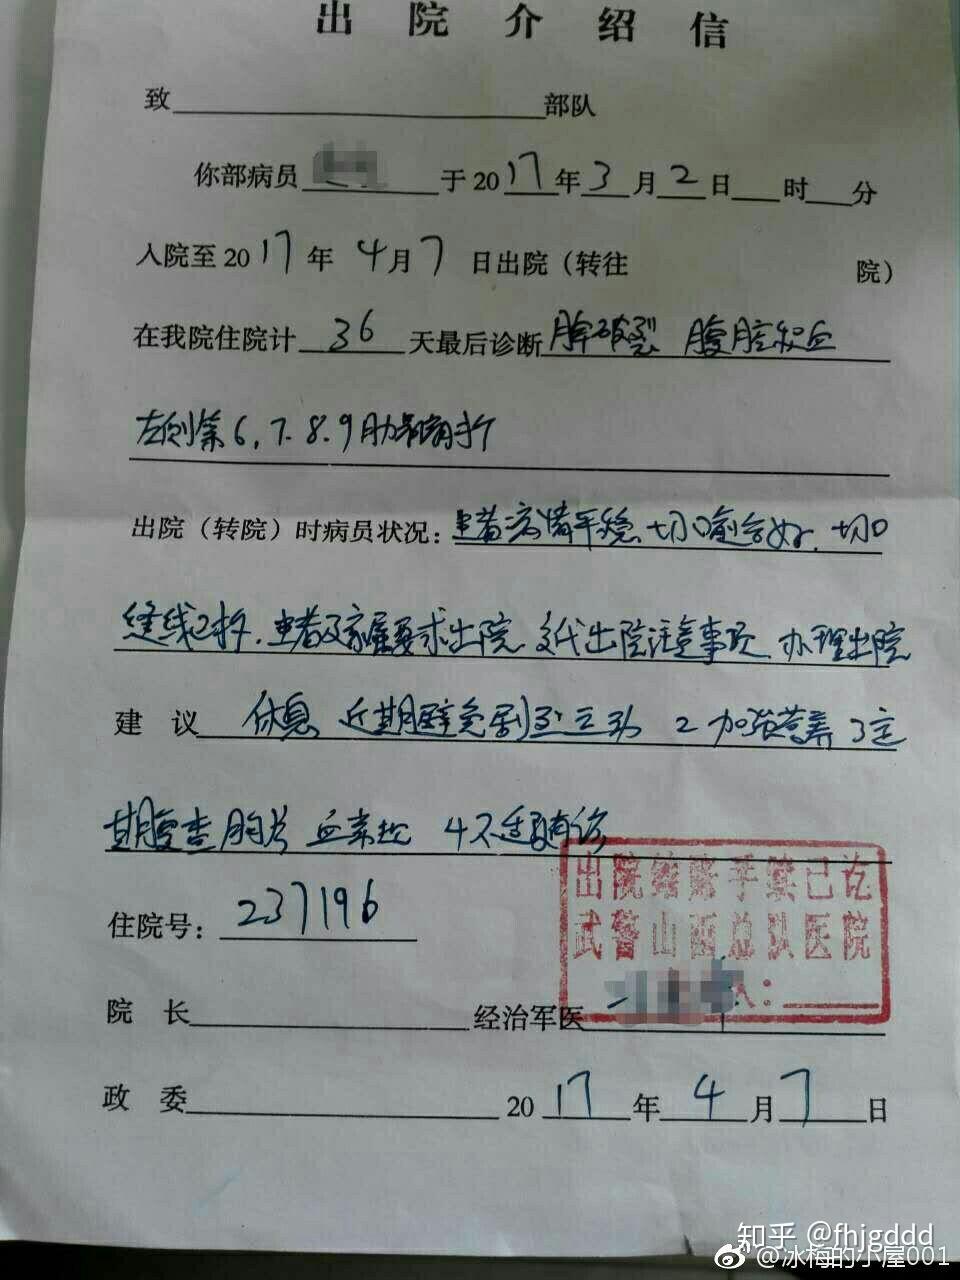 出院介绍信
致 部队
你部病员 于2017年3月2日 时 分
入院至2017年4月7日出院（转往 院）
在我院住院计36天最后诊断脾破裂 腹腔积血
左侧第6.7.8.9肋骨骨折
出院（转院）时病员状况：患者病情平稳 切口愈合好. 切口
缝线已拆. 患者及家属要求出院. 交代出院注意事项. 办理出院
建 议 休息 近期避免剧烈运动 2 加强营养 3定
期复查胸片 血常规 4不适随诊
出院结账手续已讫
住院号：237196
武警山西总队医院
人：
院 长 经治军医
政 委 2017年4月7日
知乎 @fhjgddd
@冰梅的小屋001